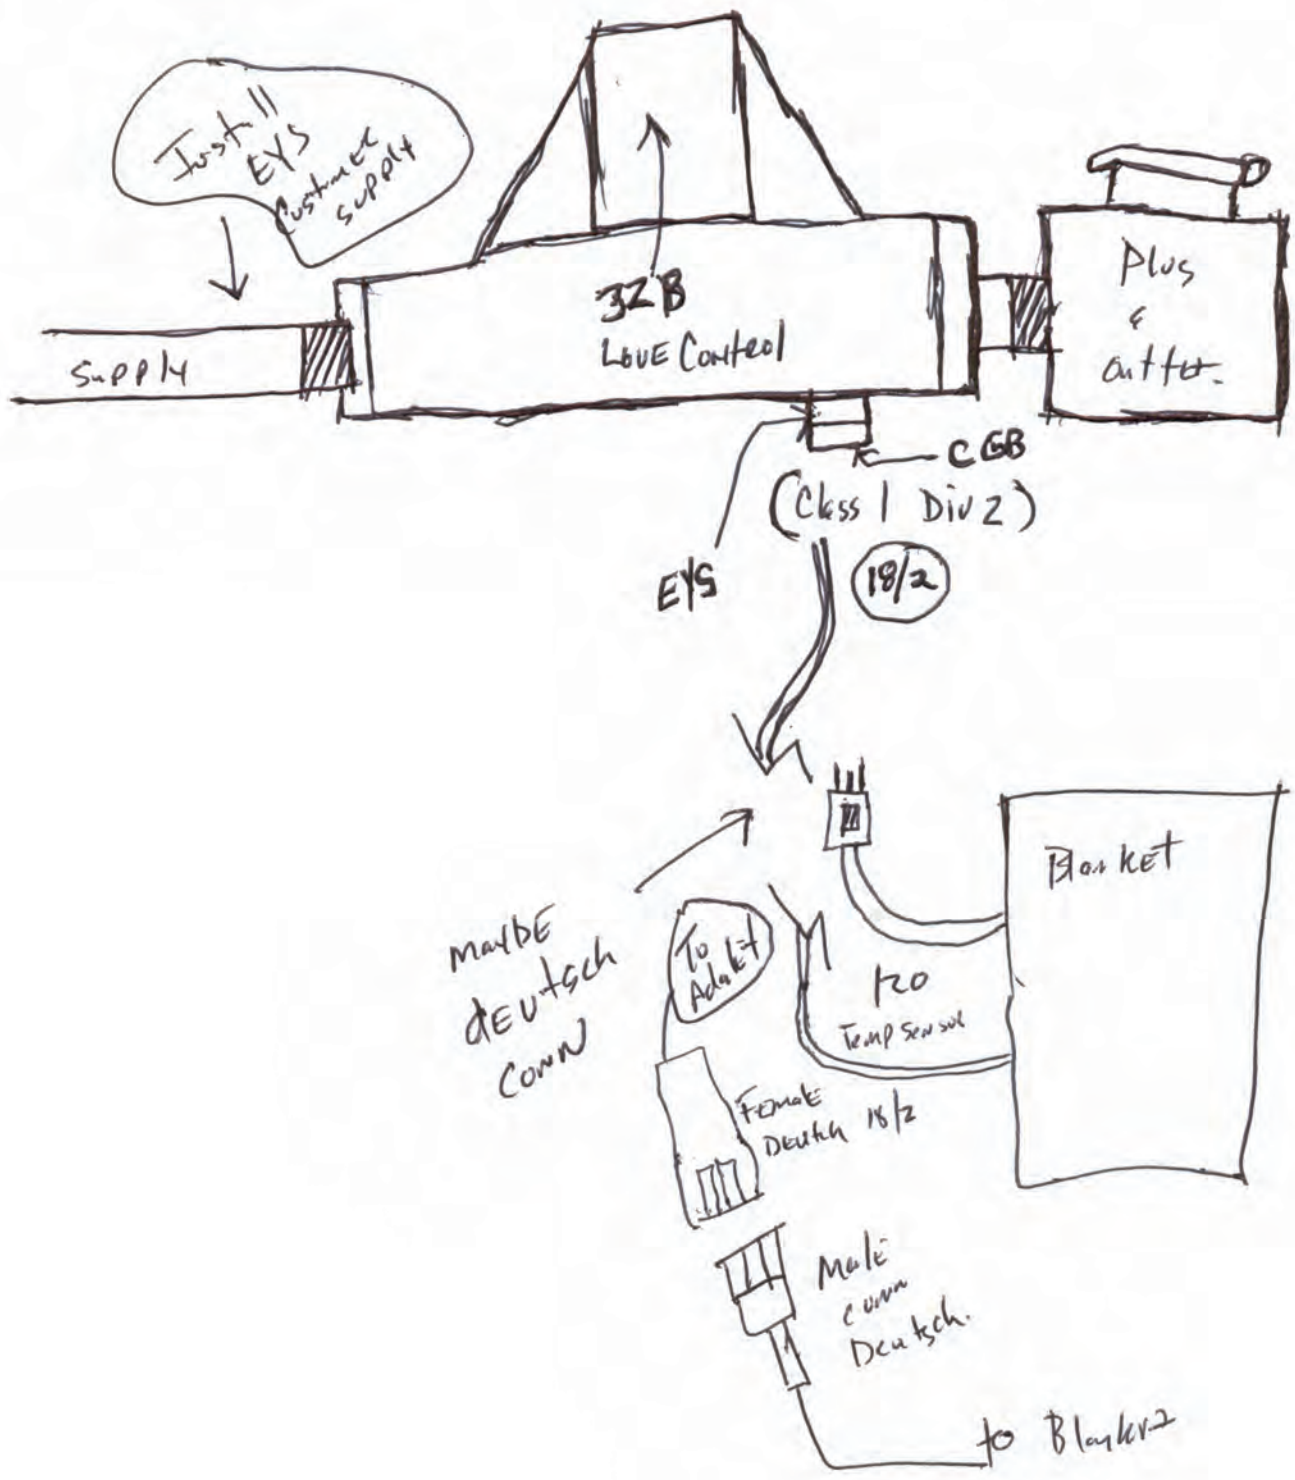 Install
EYS
Customer
supply
32B
LOVE CONtROl
Plug
&
Outlet.
Supply
CGB
(Class 1 Div 2)
EYS
18/2
Blanket
MaYBE
dEUtsch
CONN
To
Temp Sensor
Female
Deutch 18/2
Male
conn
Deutsch.
to